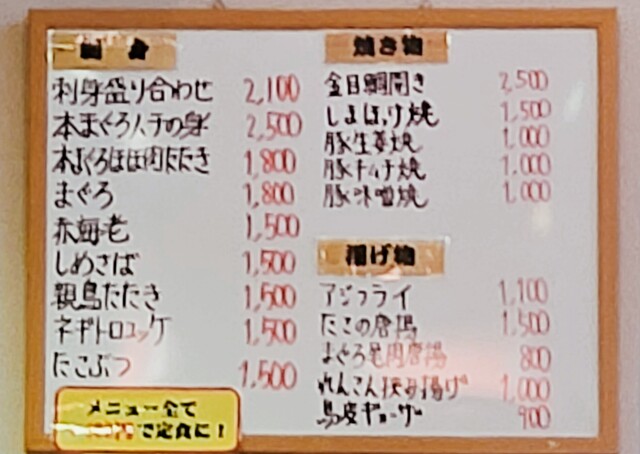 刺身
刺身盛り合わせ 2,100
本まぐろハラの身 2,500
本まぐろほほ肉たたき 1,800
まぐろ 1,800
赤海老 1,500
しめさば 1,500
親鳥たたき 1,500
ネギトロユッケ 1,500
たこぶつ 1,500
メニュー全て
円で定食に!
焼き物
金目鯛開き 2,500
しまほっけ焼 1,500
豚生姜焼 1,000
豚キムチ焼 1,000
豚味噌焼 1,000
揚げ物
アジフライ 1,100
たこの唐揚 1,500
まぐろ尾肉唐揚 800
れんこん挟み揚げ 1,000
鳥皮ギョーザ 900